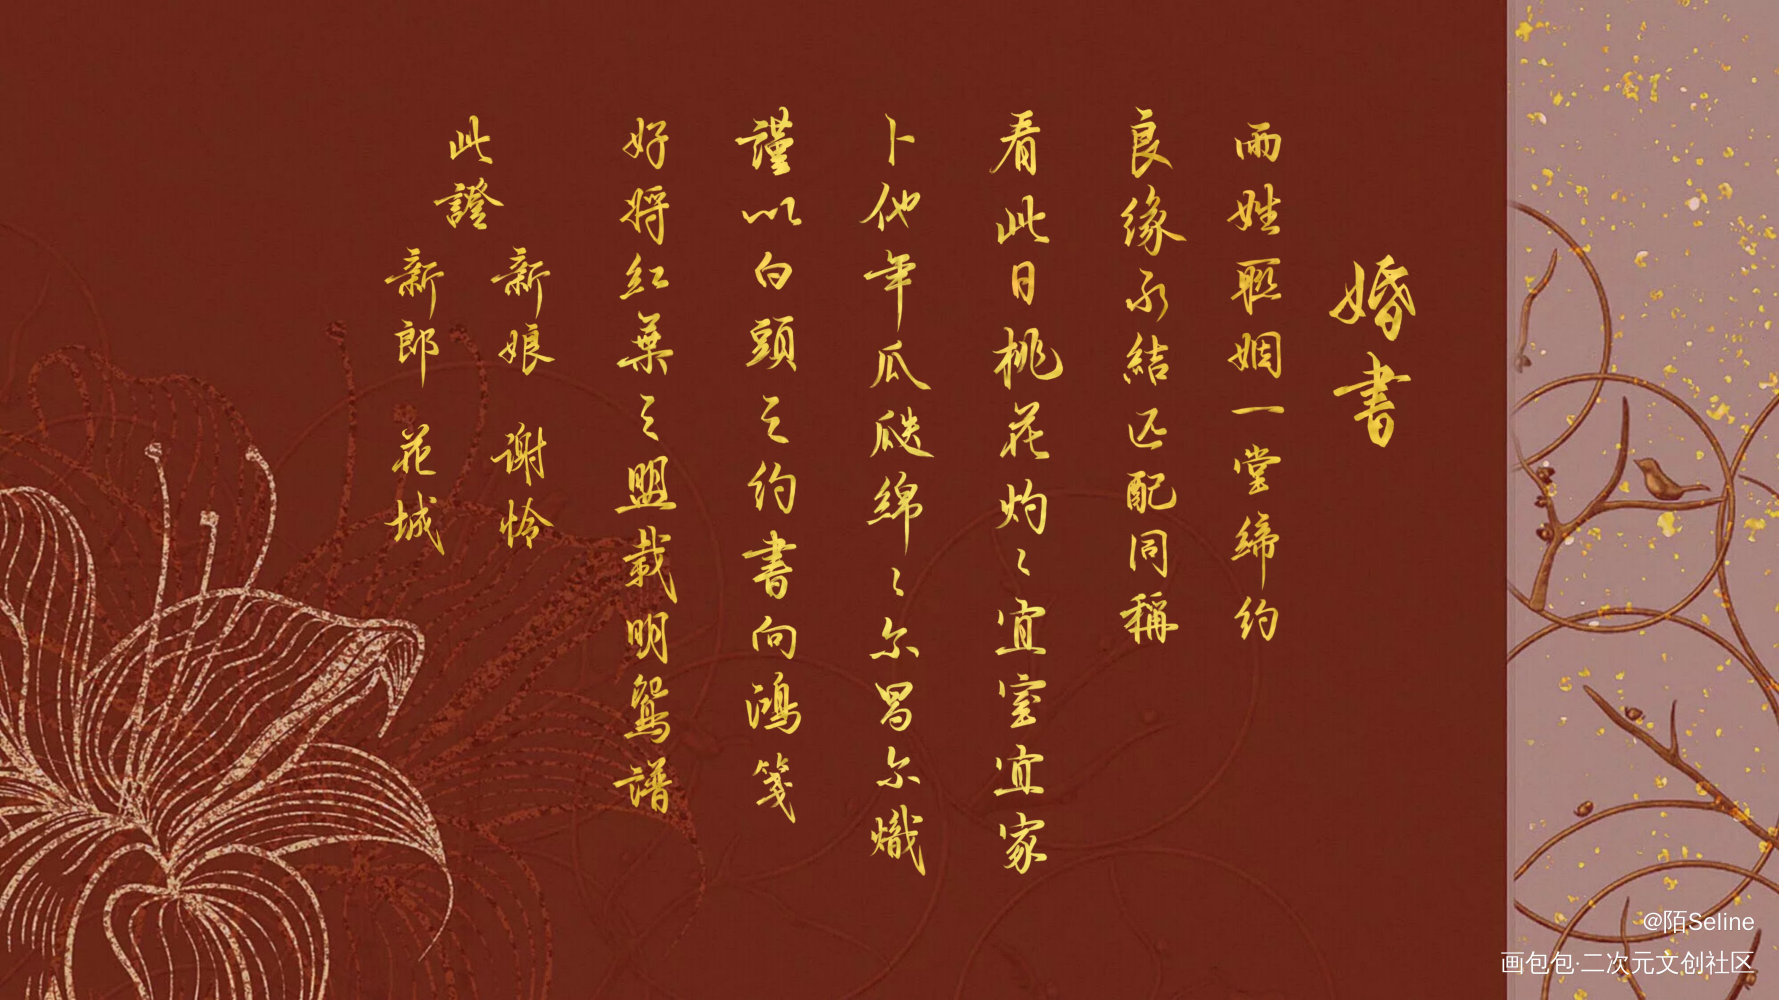 婚書
兩姓聯姻一堂締约
良緣永結匹配同稱
看此日桃花灼〻宜室宜家
卜他年瓜瓞綿〻尔昌尔熾
謹以白頭之约書向鴻箋
好将紅葉之盟載明鴛譜
此證
新娘 谢怜
新郎 花城
@陌Seline
画包包·二次元文创社区